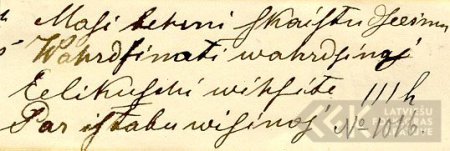 Masi behrni skaistu dseesmu
Wahrdsinati wahrdsinaj
Eelikuschi wihschte III h
Par istabu wisinoj № 1016.
LATVIEŠU FOLKLORAS KRĀTUVE